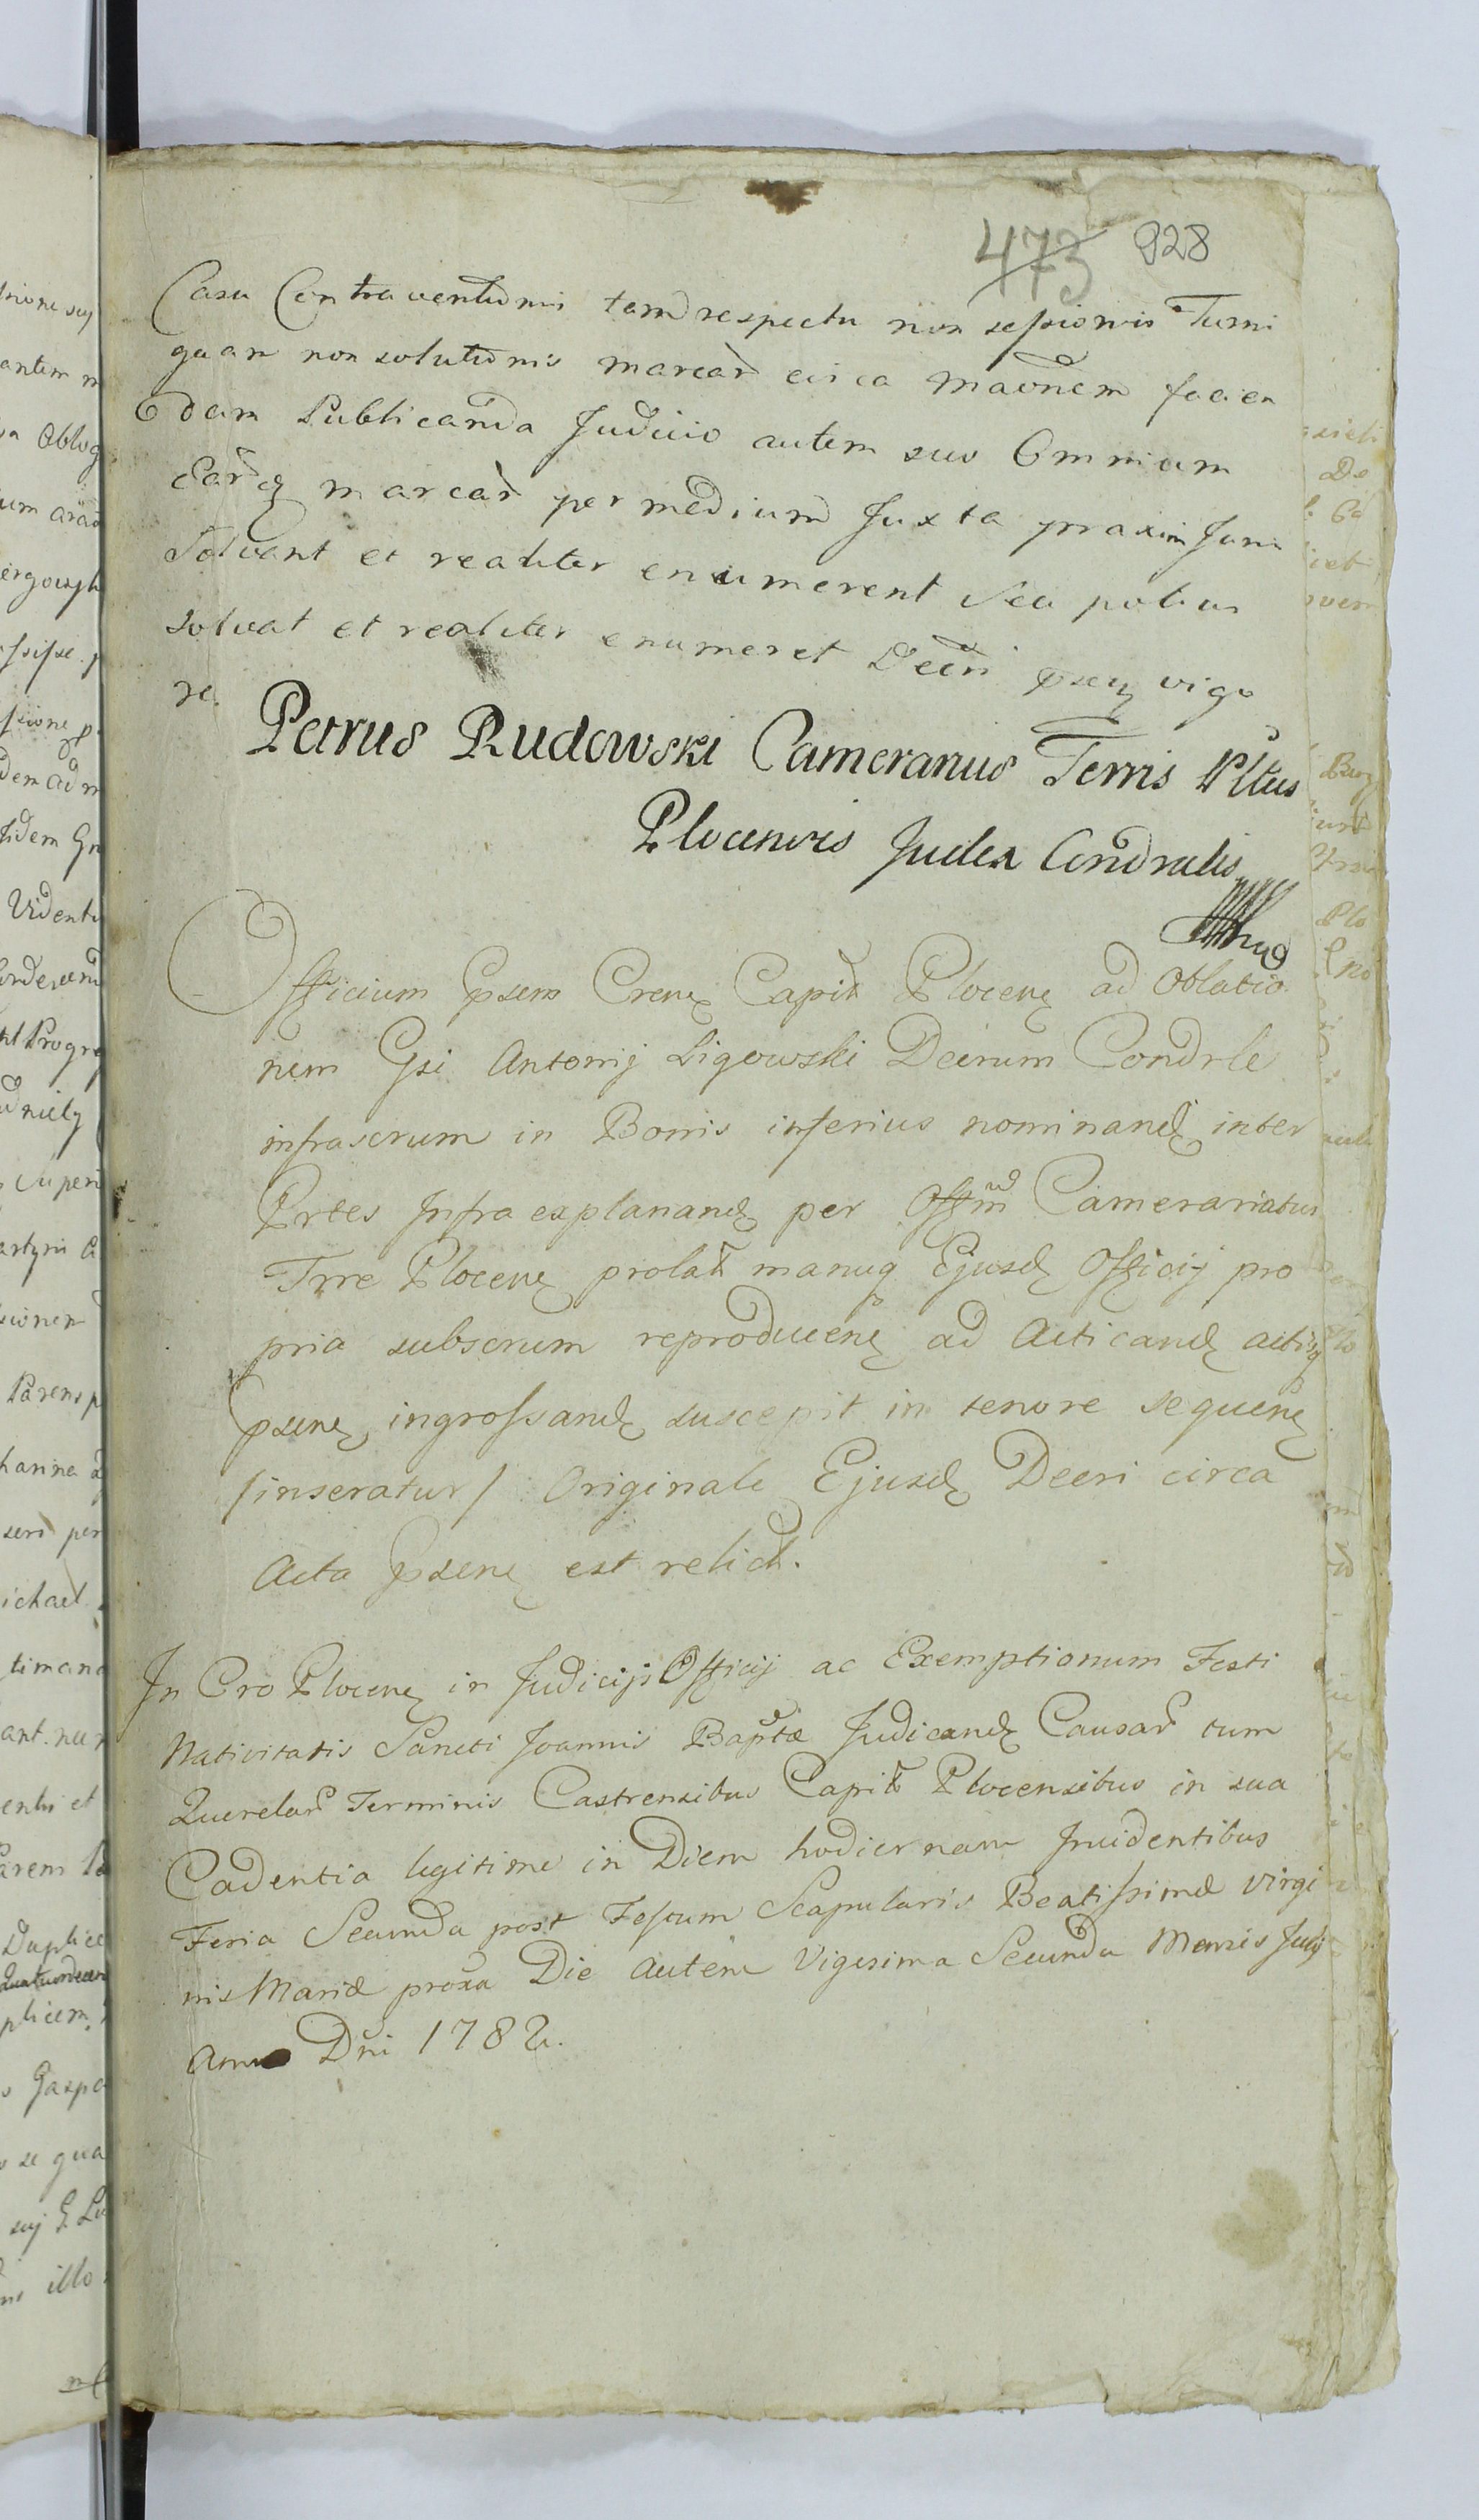 473 928
Casu Contraventionis tam respectu non sessionis Turris
quam non solutionis marcar circa maonem facien
dam Publicanda Judicio autem suo Omnium
Earq marcar per medium Juxta praxim Juris
Solvant et realiter enumerent Seu potius
solvat et realiter enumeret Decri psen vigo
re.
Petrus Rudowski Camerarius Terris Pltus
Plocensis Judex Condralis
Officium psens Crene Capit Plocene ad Oblatio
nem Gsi Antonij Ligowski Decrum Condrle
infrascrum in Bonis inferius nominand inter
Prtes Infra explanand per Offm Camerariatus
Trre Plocene prolat manuq Ejusd Officij pro
pria subscrum reproducene ad Acticand actisq
psene ingrossand suscepit in tenore sequene
/inseratur/ Originale Ejusd Decri circa
Acta psene est relict.
In Cro Plocene in Judicijs Officij ac Exemptionum Festi
Nativitatis Sancti Joannis Baptæ Judicand Causar tum
Querelar Terminis Castrensibus Capit Plocensibus in sua
Cadentia legitime in Diem hodiernam Incidentibus
Feria Secunda post Festum Scapularis Beatissimæ Virgi
nis Mariæ proxa Die autem Vigesima Secunda Mensis Julij
Anno Dni 1782.